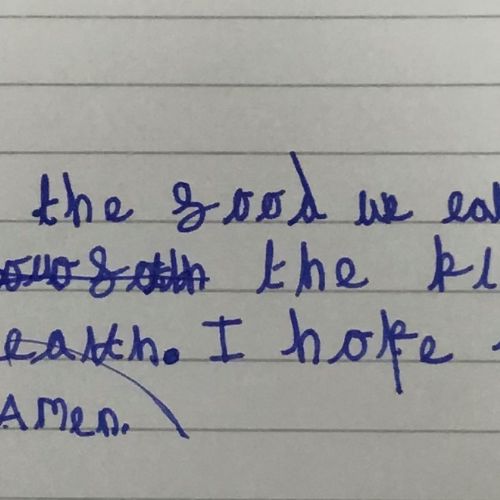 the food we eat
the
earth. I hope
Amen.